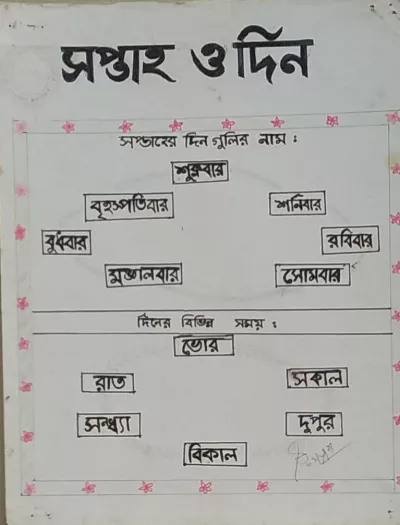 সপ্তাহ ও দিন
সপ্তাহের দিন গুলির নাম :
শুক্রবার
বৃহস্পতিবার শনিবার
বুধবার রবিবার
মঙ্গলবার সোমবার
দিনের বিভিন্ন সময় :
ভোর
রাত সকাল
সন্ধ্যা দুপুর
বিকাল